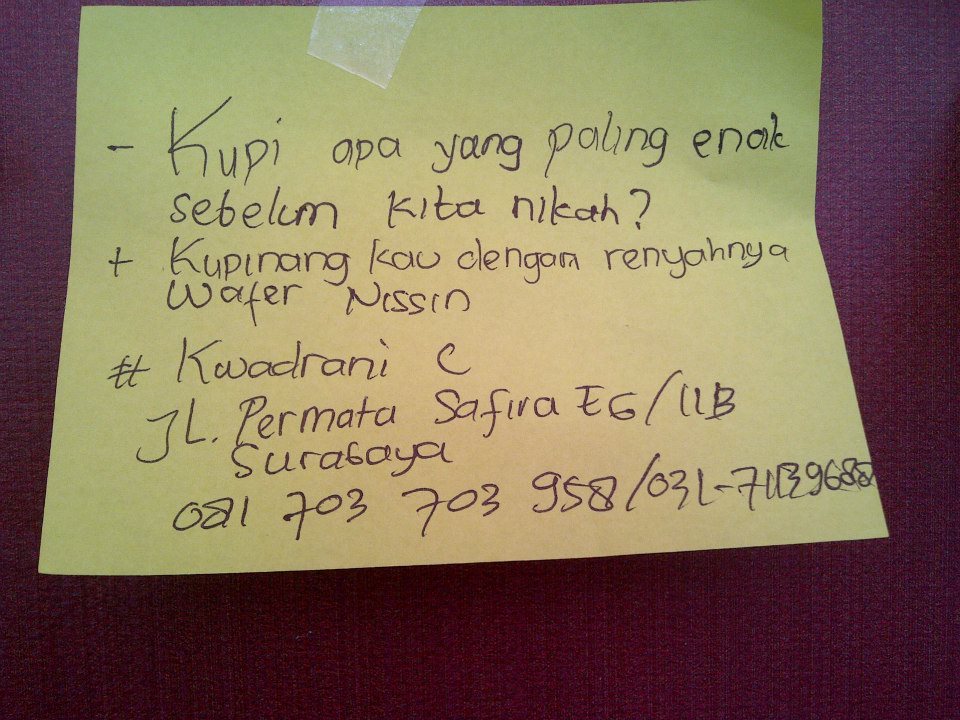 - Kupi apa yang paling enak
sebelum kita nikah?
+ Kupinang kau dengan renyahnya
Wafer Nissin
# Kwadrani C
JL. Permata Safira E6/11B
Surabaya
081 703 703 958/031-